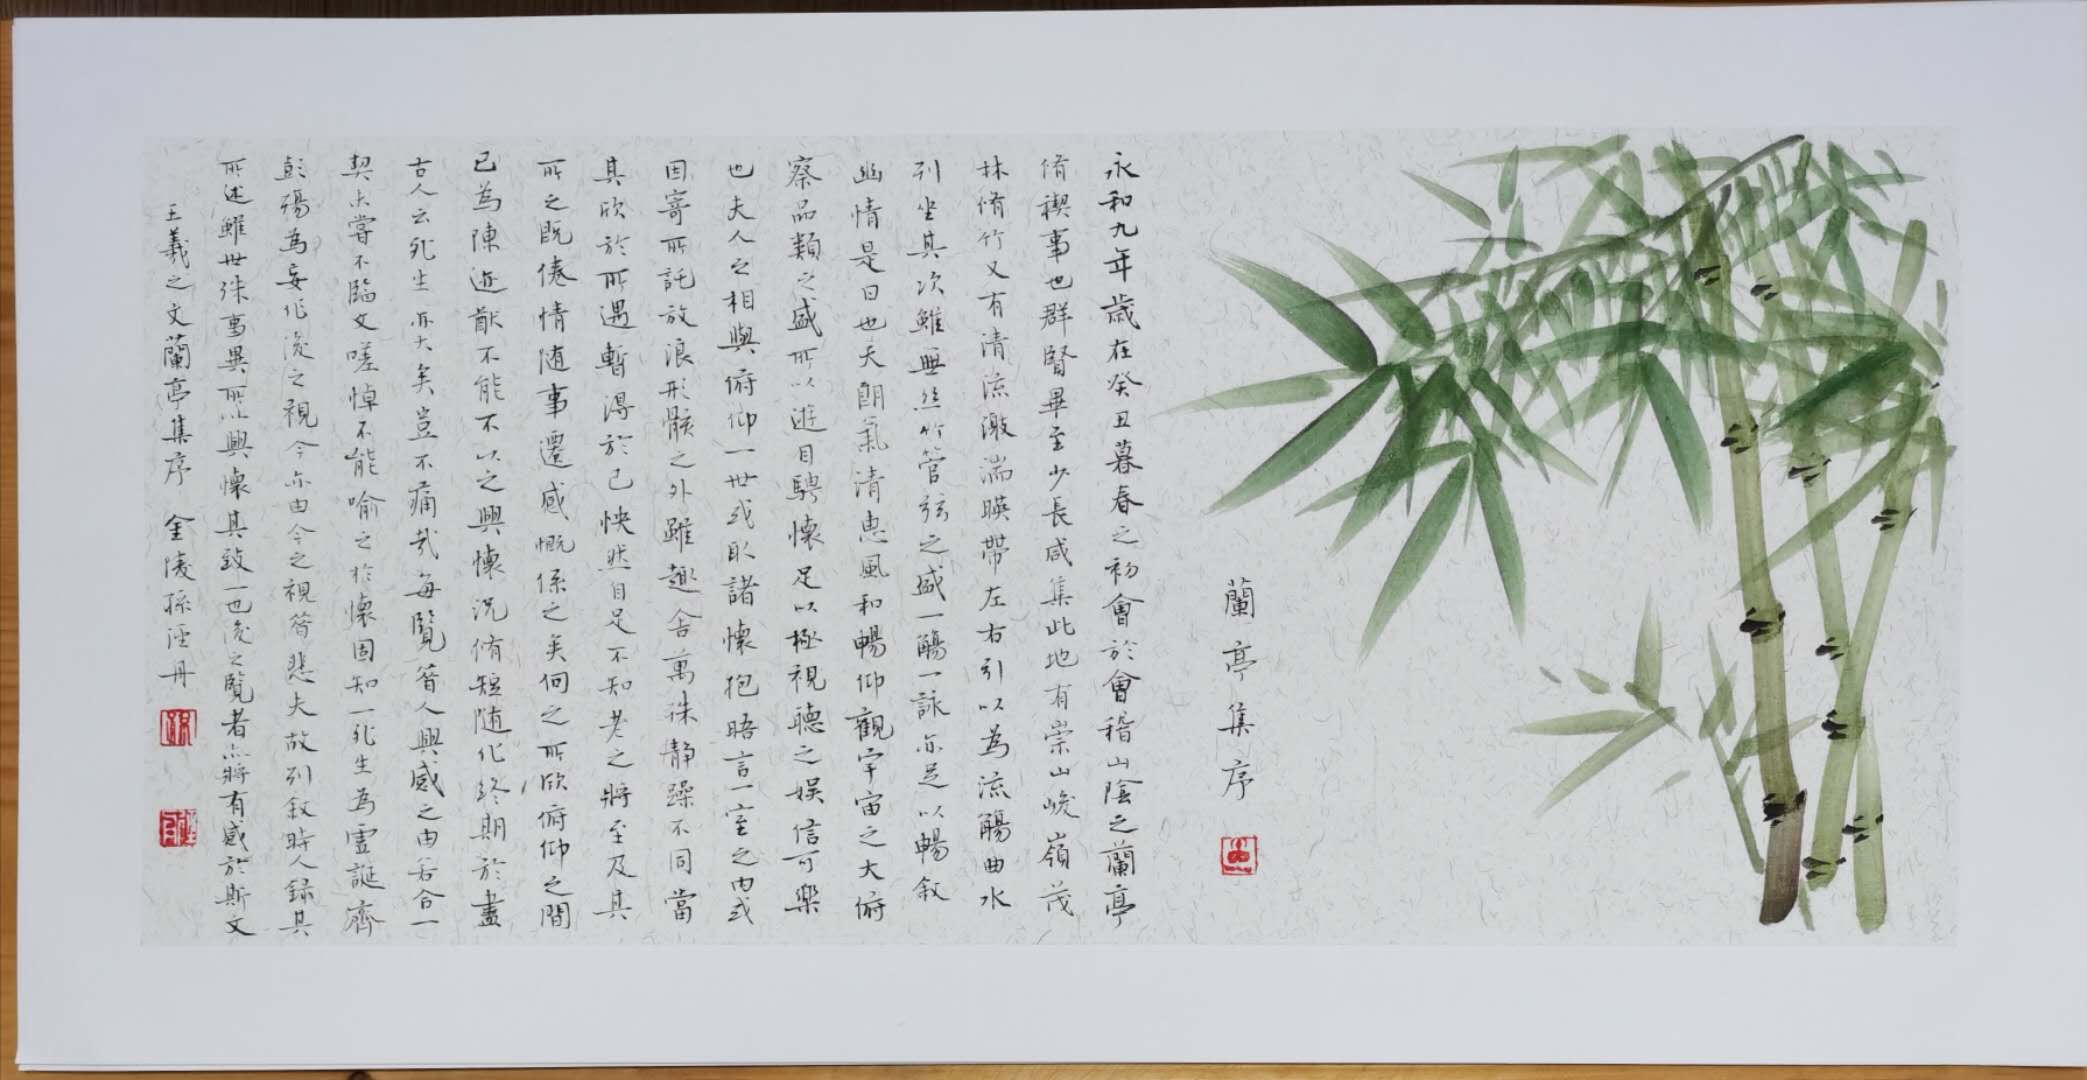 蘭亭集序
永和九年歲在癸丑暮春之初會於會稽山陰之蘭亭
脩禊事也群賢畢至少長咸集此地有崇山峻嶺茂
林脩竹又有清流激湍暎帶左右引以為流觴曲水
列坐其次雖無絲竹管弦之盛一觴一詠亦足以暢敘
幽情是日也天朗氣清惠風和暢仰觀宇宙之大俯
察品類之盛所以遊目騁懷足以極視聽之娛信可樂
也夫人之相與俯仰一世或取諸懷抱晤言一室之內或
因寄所託放浪形骸之外雖趣舍萬殊靜躁不同當
其欣於所遇暫得於己怏然自足不知老之將至及其
所之既倦情随事遷感慨係之矣向之所欣俯仰之間
已為陳迹猷不能不以之興懷況脩短随化終期於盡
古人云死生亦大矣豈不痛哉每覽昝人興感之由若合一
契未嘗不臨文嗟悼不能喻之於懷固知一死生為虛誕齊
彭殤為妄作後之視今亦由今之視昝悲夫故列敘時人錄其
所述雖世殊事異所以興懷其致一也後之覽者亦將有感於斯文
王羲之文蘭亭集序 金陵孫 丹